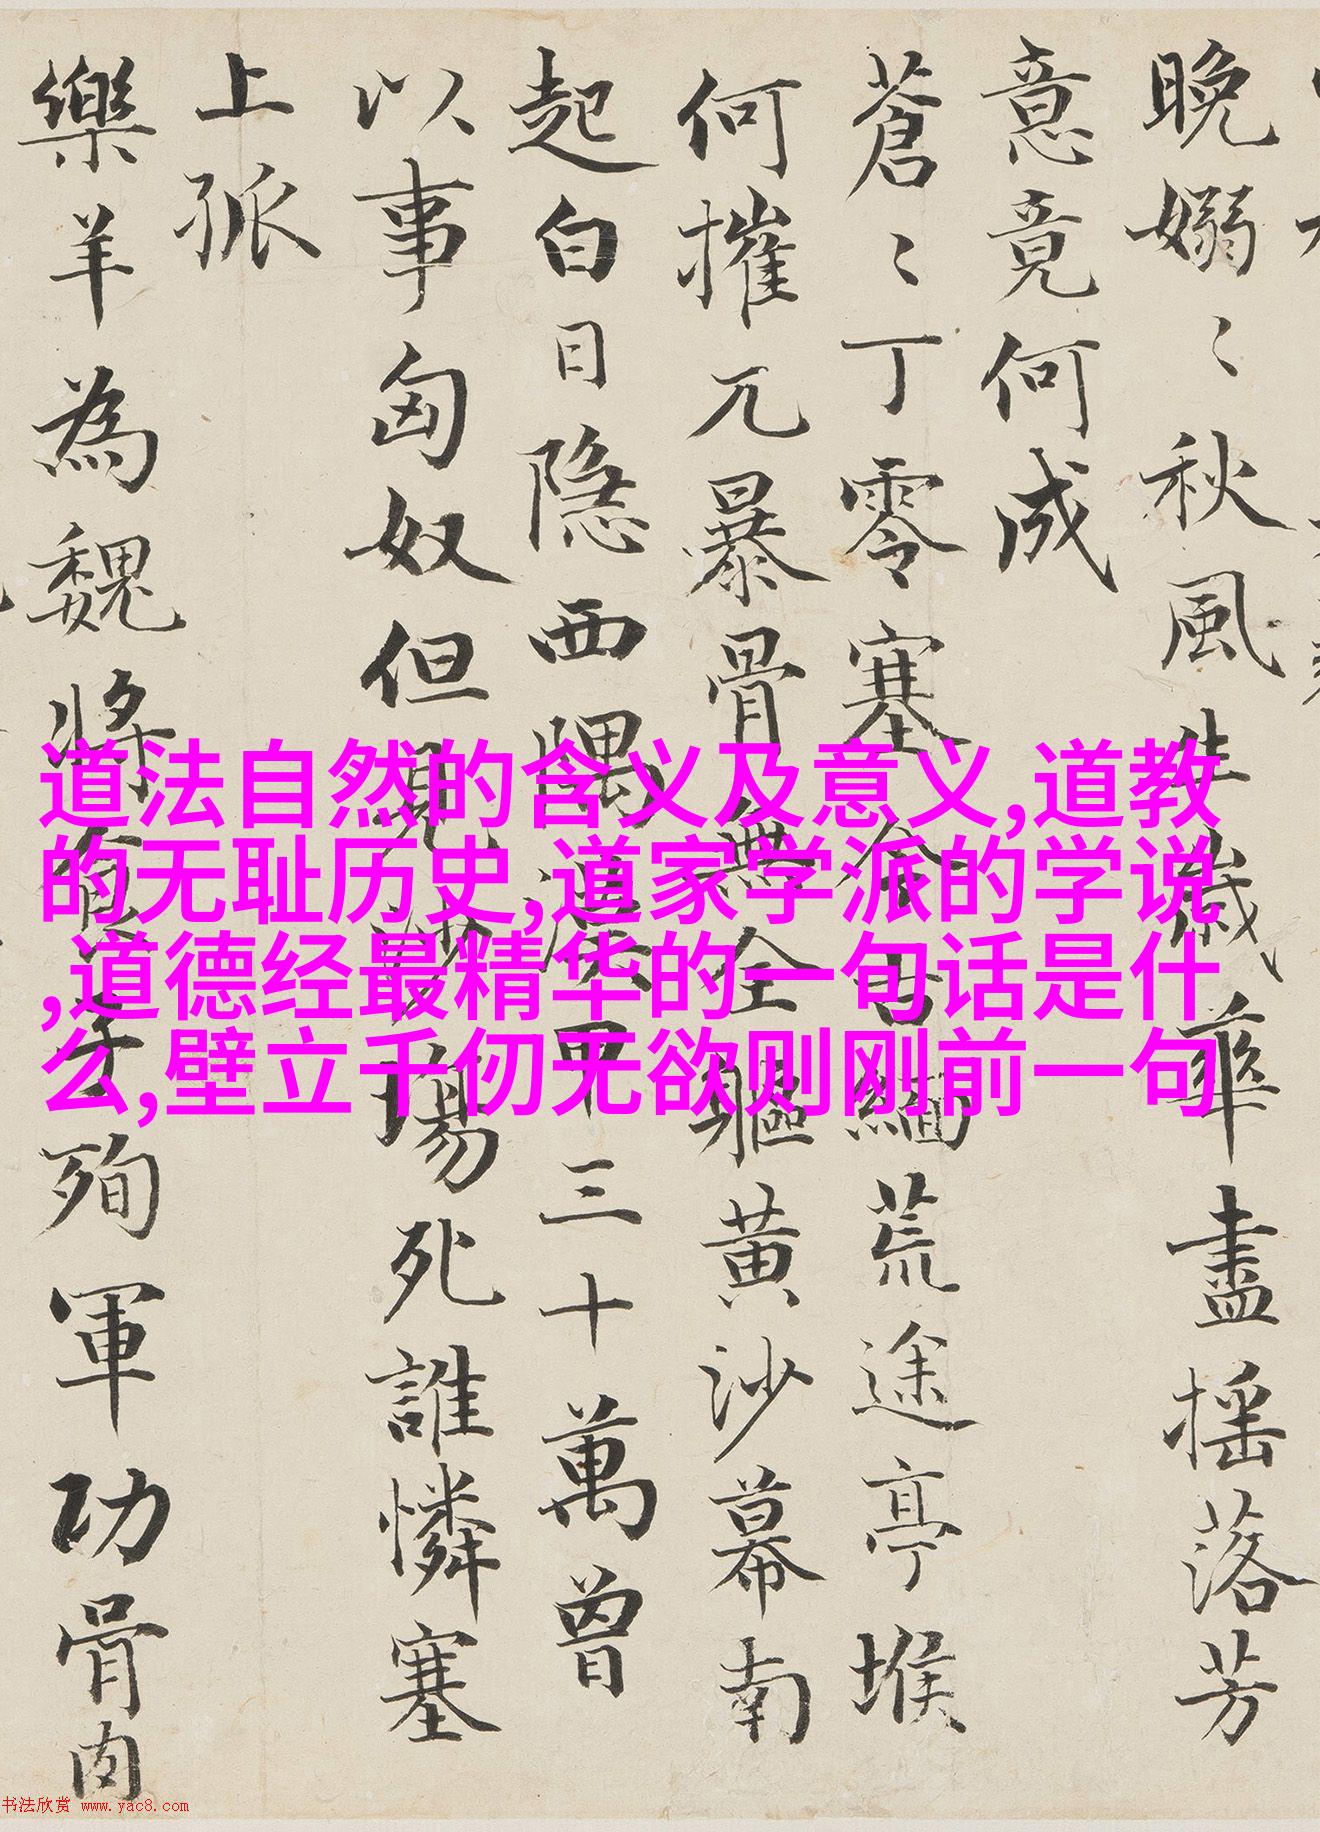 晚嫋〻秋風生歲華盡摇落芳
意竟何成
蒼〻丁零塞今古緬荒途亭堠
何摧兀暴骨無全軀黄沙幕南
起白日隱西隅漢甲三十萬曾
以事匈奴但見沙場死誰憐塞
上孤
樂羊為魏將食子殉軍功骨肉
道法自然的含义及意义,道教
的无耻历史,道家学派的学说
,道德经最精华的一句话是什
么,壁立千仞无欲则刚前一句
书法欣赏 www.yac8.com